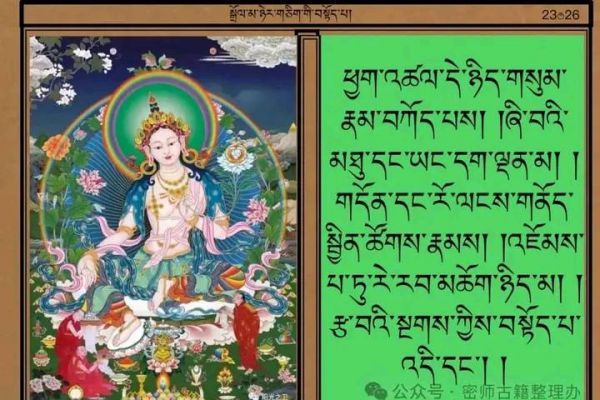 སྒྲོལ་མ་ཉེར་གཅིག་གི་བསྟོད་པ།
23 26
ཕྱག་འཚལ་དེ་ཉིད་གསུམ་
རྣམ་བཀོད་པས། །ཞི་བའི་
མཐུ་དང་ཡང་དག་ལྡན་མ། །
གདོན་དང་རོ་ལངས་གནོད་
སྦྱིན་ཚོགས་རྣམས། །འཇོམས་
པ་ཏུ་རེ་རབ་མཆོག་ཉིད་མ། །
རྩ་བའི་སྔགས་ཀྱིས་བསྟོད་པ་
འདི་དང༌། །
公众号·密师古籍整理办